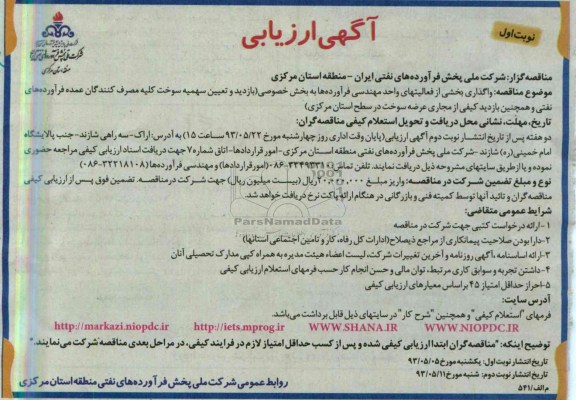 آگهی ارزیابی
نوبت اول
شرکت ملی پخش فرآورده‌های نفتی ایران
منطقه استان مرکزی
مناقصه‌گزار: شرکت ملی پخش فرآورده‌های نفتی ایران - منطقه استان مرکزی
موضوع مناقصه: واگذاری بخشی از فعالیتهای واحد مهندسی فرآورده‌ها به بخش خصوصی (بازدید و تعیین سهمیه سوخت کلیه مصرف کنندگان عمده فرآورده‌های
نفتی و همچنین بازدید کیفی از مجاری عرضه سوخت در سطح استان مرکزی)
تاریخ، مهلت، نشانی محل دریافت و تحویل استعلام کیفی مناقصه‌گران:
دو هفته پس از تاریخ انتشار نوبت دوم آگهی ارزیابی (پایان وقت اداری روز چهارشنبه مورخ ۹۳/۰۵/۲۲ ساعت ۱۵) به آدرس: اراک- سه راهی شازند- جنب پالایشگاه
امام خمینی (ره) شازند - شرکت ملی پخش فرآورده‌های نفتی منطقه استان مرکزی - امور قراردادها- اتاق شماره ۷ جهت دریافت اسناد ارزیابی کیفی مراجعه حضوری
نموده و یا از طریق سایتهای مشروحه ذیل دریافت نمایند. تلفن تماس: ۳۳۴۹۳۳۱-۰۸۶ (امور قراردادها) و مهندسی فرآورده‌ها (۳۲۲۱۸۱۰۸-۰۸۶)
نوع و مبلغ تضمین شرکت در مناقصه: واریز مبلغ ۲۰،۰۰۰،۰۰۰ ریال (بیست میلیون ریال) جهت شرکت در مناقصه. تضمین فوق پس از ارزیابی کیفی
مناقصه‌گران و تائید آنها توسط کمیته فنی و بازرگانی در هنگام ارائه پاکت نرخ دریافت خواهد شد.
شرایط عمومی متقاضی:
۱- ارائه درخواست کتبی جهت شرکت در مناقصه
۲- دارا بودن صلاحیت پیمانکاری از مراجع ذیصلاح (ادارات کل رفاه، کار و تامین اجتماعی استانها)
۳- ارائه اساسنامه، آگهی روزنامه و آخرین تغییرات شرکت، لیست اعضاء هیئت مدیره به همراه کپی مدارک تحصیلی آنان
۴- داشتن تجربه و سوابق کاری مرتبط، توان مالی و حسن انجام کار حسب فرمهای استعلام ارزیابی کیفی
۵- احراز حداقل امتیاز ۴۵ براساس معیارهای ارزیابی کیفی
آدرس سایت:
فرمهای "استعلام کیفی" و همچنین "شرح کار" در سایتهای ذیل قابل برداشت می‌باشد.
http://markazi.niopdc.ir http://iets.mprog.ir WWW.SHANA.IR WWW.NIOPDC.IR
توضیح اینکه: "مناقصه‌گران ابتدا ارزیابی کیفی شده و پس از کسب حداقل امتیاز لازم در فرایند کیفی، در مراحل بعدی مناقصه شرکت می‌نمایند."
تاریخ انتشار نوبت اول: یکشنبه مورخ ۹۳/۰۵/۰۵
تاریخ انتشار نوبت دوم: شنبه مورخ ۹۳/۰۵/۱۱
م الف/۵۴۱
روابط عمومی شرکت ملی پخش فرآورده‌های نفتی منطقه استان مرکزی
ParsNamadData